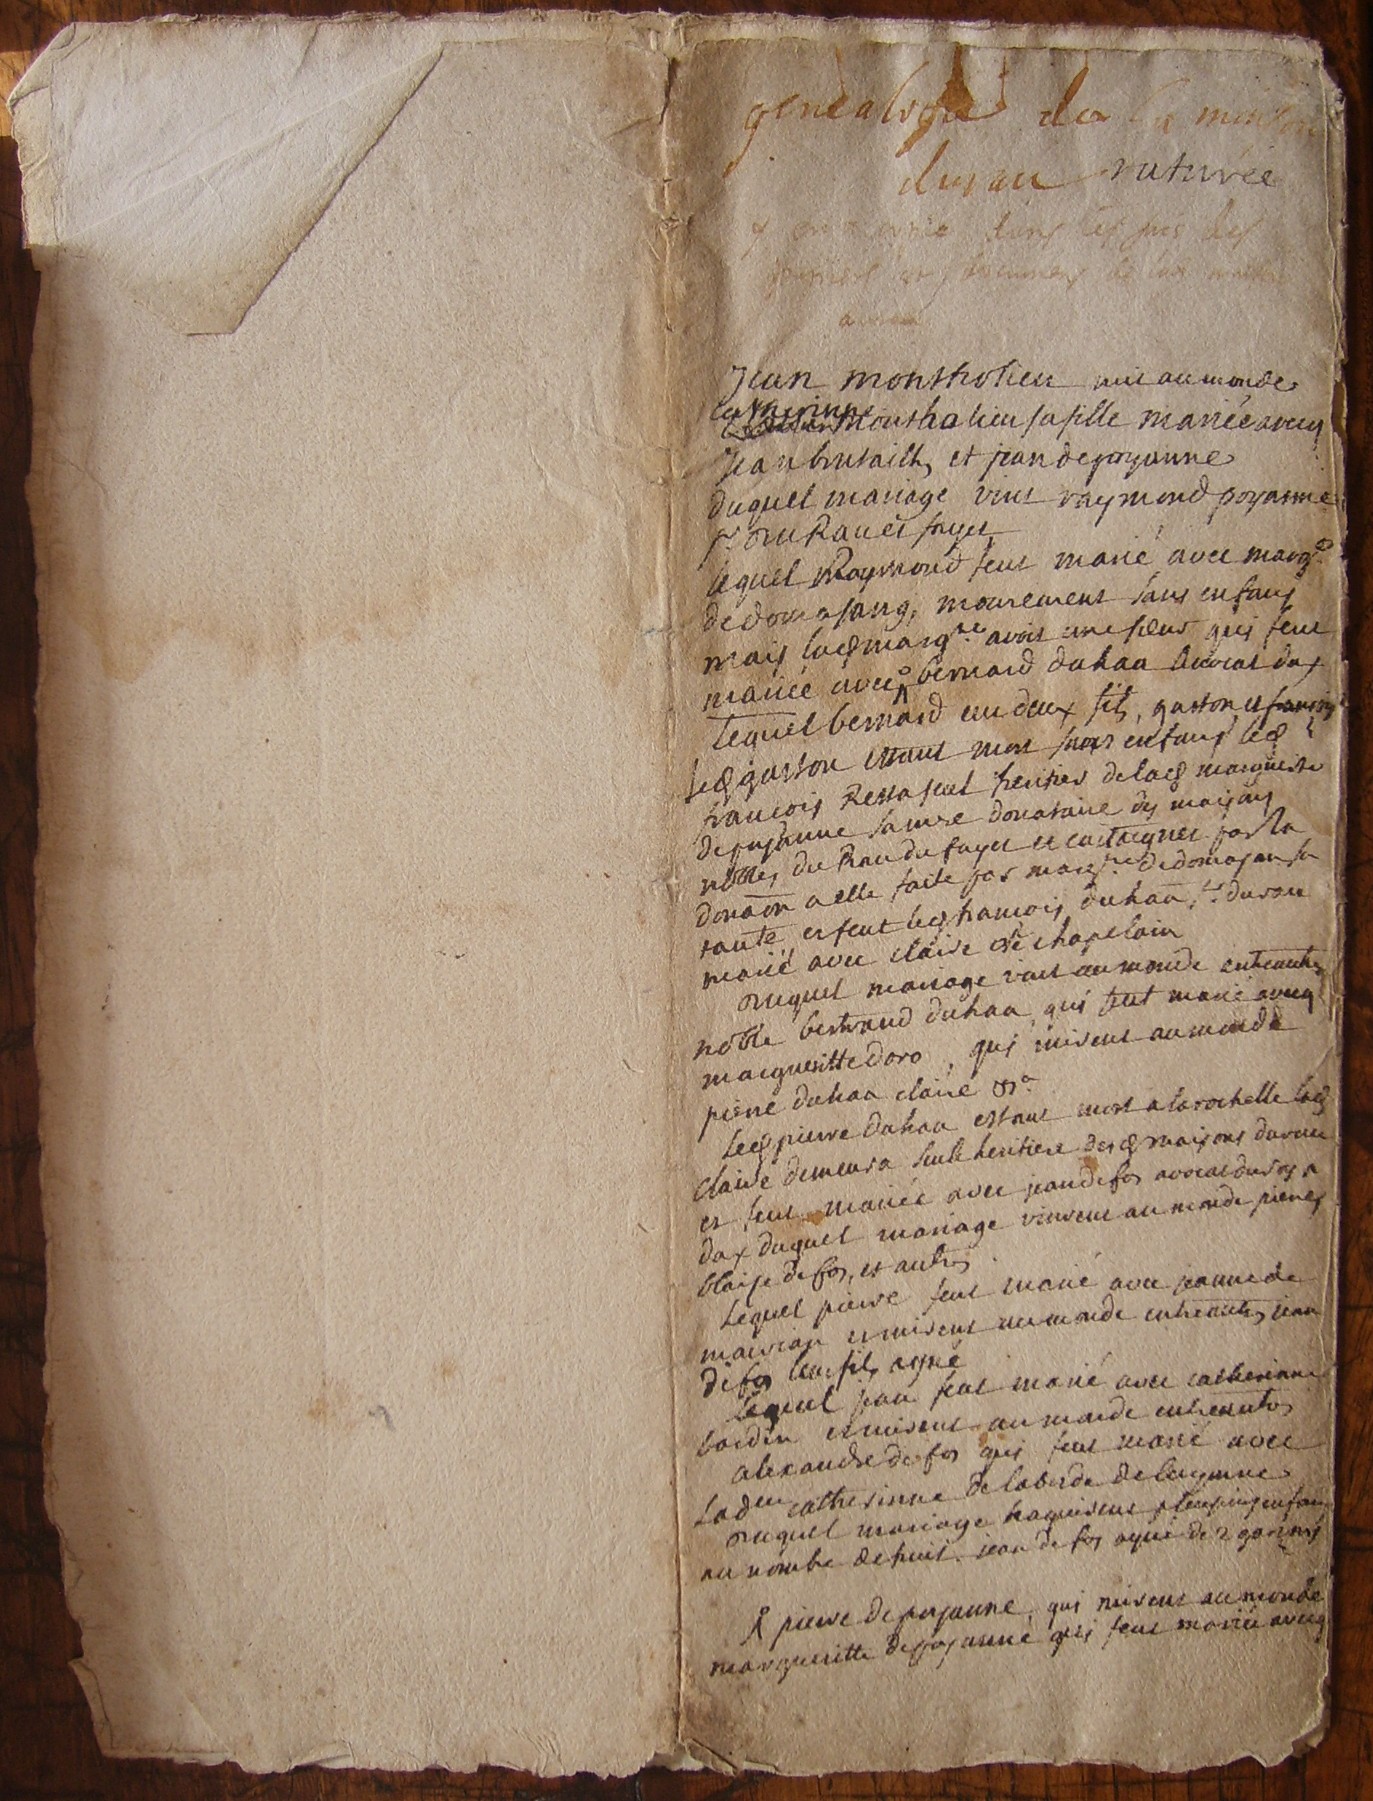 genealogie de la maison
du rau raturée
Jean monstholieu mit au monde
catherinne monsholieu sa fille mariée avecq
Jean brutailh, et jean de poyanne
duquel mariage vint raymond poyanne
sr. du Rau et fayet
lequel Raymond feut marié avec margte
de domesang, moururent sans enfans
mais lad margte. avoit une sœur qui feut
mariée avec bernard duhaa avocat dax
lequel bernard eu deux fils, gaston et francois
led gaston estant mort sans enfans led
francois Resta seul heritier de lad marguerite
de poyanne sa mere donataire des maisons
nobles du Rau du fayet et castaignet par la
donaon a elle faite par margte. de domesan sa
tante, et feut led francois duhaa sr. du rau
marié avec claire de chapelain
duquel mariage vint au monde entreautres
noble bertrand duhaa qui feut marié avecq
margueritte doro, qui mirent au monde
pierre duhaa claire &a
led pierre duhaa estant mort a la rochelle lad
claire demeura seule heritiere desd maisons du rau
et feut mariée avec jean de fos avocat du roy a
dax duquel mariage vinrent au monde pierre
blaise de fos, et autres
Lequel pierre feut marié avec jeanne de
maurian et mirent au monde entreautres jean
de fos leur fils ayné
lequel jean feut marié avec catherinne
bardin et mirent au monde entreautres
alexandre de fos qui feut marié avec
Lad catherinne de laborde de bayonne
duquel mariage naquirent plusieurs enfans
au nombre de huit. jean de fos ayné de 2 garcons
pierre de poyanne, qui mirent au monde
margueritte de poyanne qui feut mariée avecq